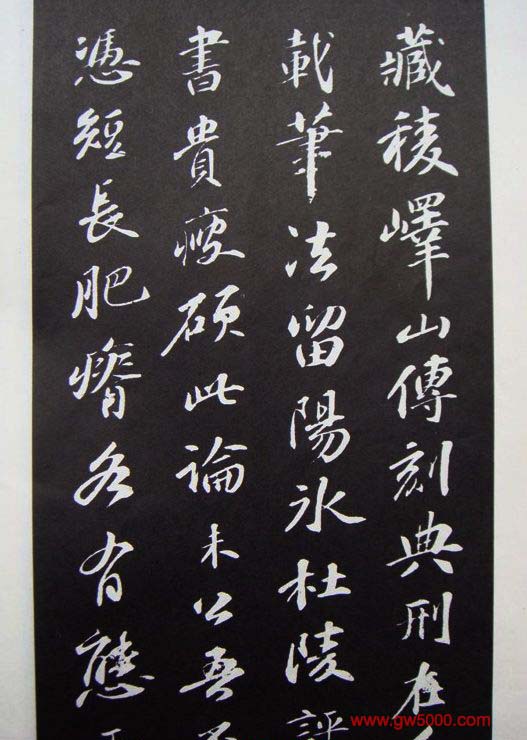 藏稜嶧山傳刻典刑在
載筆法留陽冰杜陵評
書貴瘦硬此論未公吾不
憑短長肥瘠各有態
www.gw5000.com